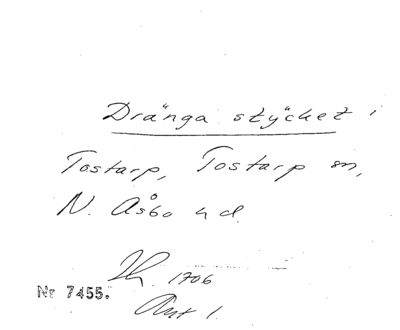 Dränga stycket i
Tostarp, Tostarp sn,
N. Åsbo hd.
1706
Nr 7455.
Akt 1.